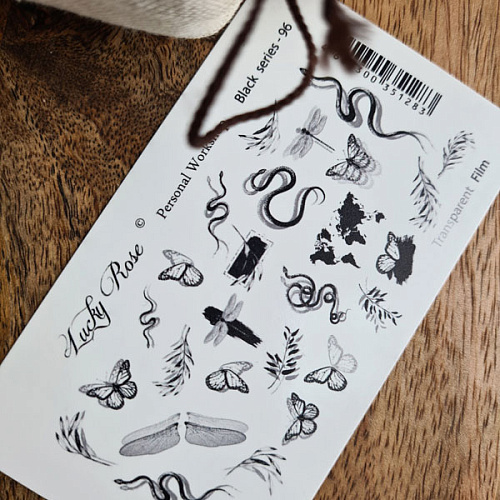 Lucky Rose ©
Personal Works
Black series - 96
500351283
Transparent Film